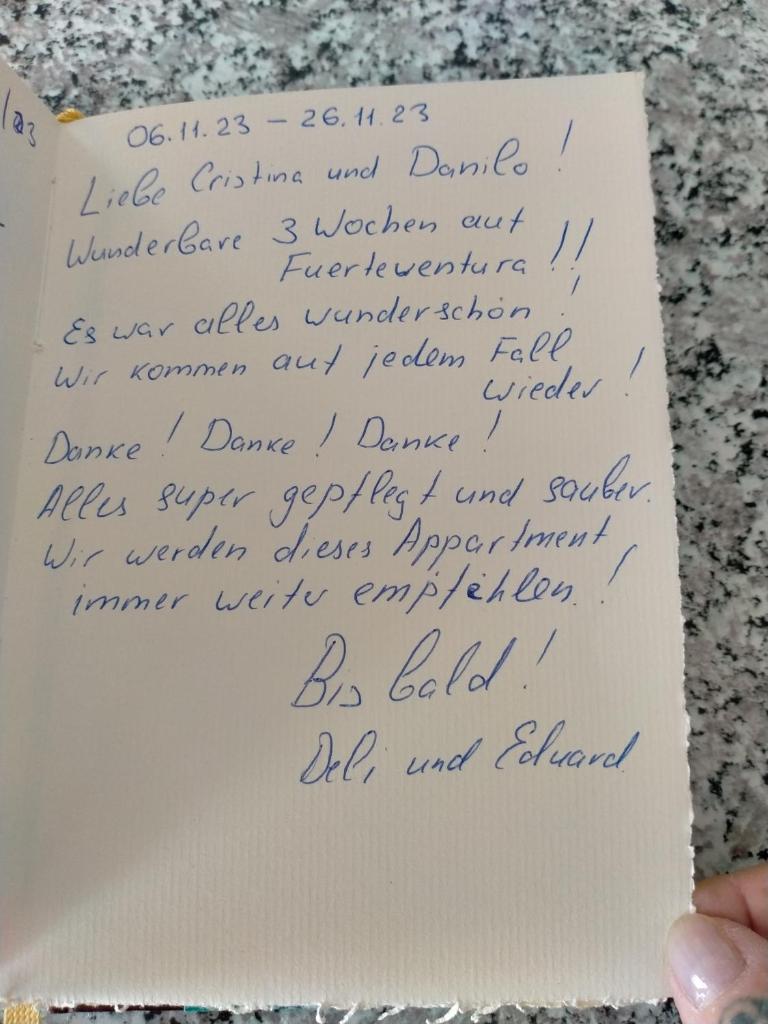 /23
06.11.23 – 26.11.23
Liebe Cristina und Danilo !
Wunderbare 3 Wochen auf
Fuerteventura !!
Es war alles wunderschön !
Wir kommen auf jedem Fall
wieder !
Danke ! Danke ! Danke !
Alles super gepflegt und sauber.
Wir werden dieses Appartment
immer weiter empfehlen. !
Bis bald !
Deli und Eduard